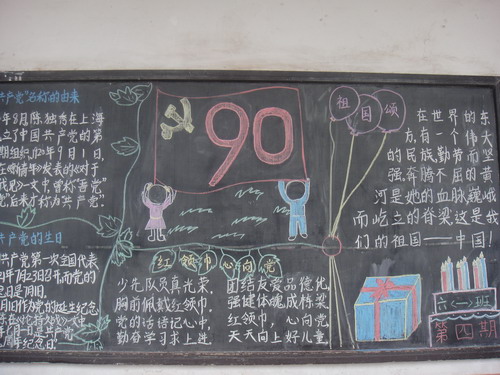 共产党"名称的由来
年8月陈独秀在上海
立了中国共产党的第
年9月1日,
共产党"。
共产党的生日
共产党第一次全国代表
年7月23召开而党的
月1日作为党的诞生纪念
周年纪念日。
90
祖国颂
在世界的东
方,有一个伟大
的民族勤劳而坚
强奔腾不屈的黄
河是她的血脉巍峨
而屹立的脊梁这是我
们的祖国——中国!
红领巾心向党
少先队员真光荣,
胸前佩戴红领巾。
党的话语记心中,
勤奋学习求上进。
团结友爱品德优,
强健体魄成栋梁
红领巾,心向党
天天向上好儿童。
六(一)班
第四期